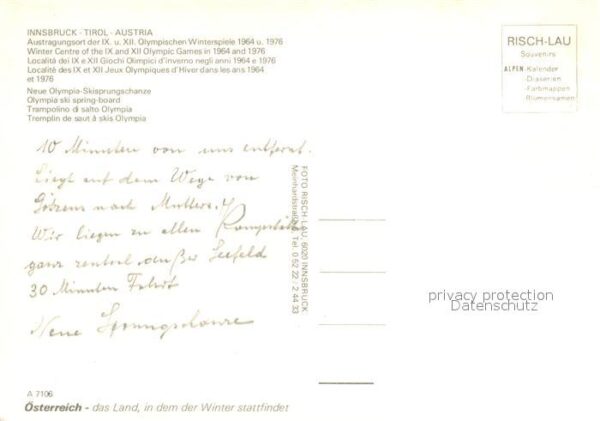 INNSBRUCK - TIROL - AUSTRIA
Austragungsort der IX. u. XII. Olympischen Winterspiele 1964 u. 1976
Winter Centre of the IX and XII Olympic Games in 1964 and 1976
Località dei IX e XII Giochi Olimpici d'inverno negli anni 1964 e 1976
Localité des IX et XII Jeux Olympiques d'Hiver dans les ans 1964
et 1976
Neue Olympia-Skisprungschanze
Olympia ski spring-board
Trampolino di salto Olympia
Tremplin de saut à skis Olympia
RISCH-LAU
Souvenirs
ALPEN-Kalender
-Diaserien
-Farbmappen
-Blumensamen
10 Minuten von uns entfernt.
Liegt auf dem Wege von
Götzens nach Mutters.
Wir liegen zu allen
ganz zentral außer Seefeld
30 Minuten Fahrt
Neue Sprungschanze
FOTO RISCH-LAU, 6020 INNSBRUCK
Meinhardstraße, Tel. 0 52 22 - 2 44 33
privacy protection
Datenschutz
A 7106
Österreich - das Land, in dem der Winter stattfindet